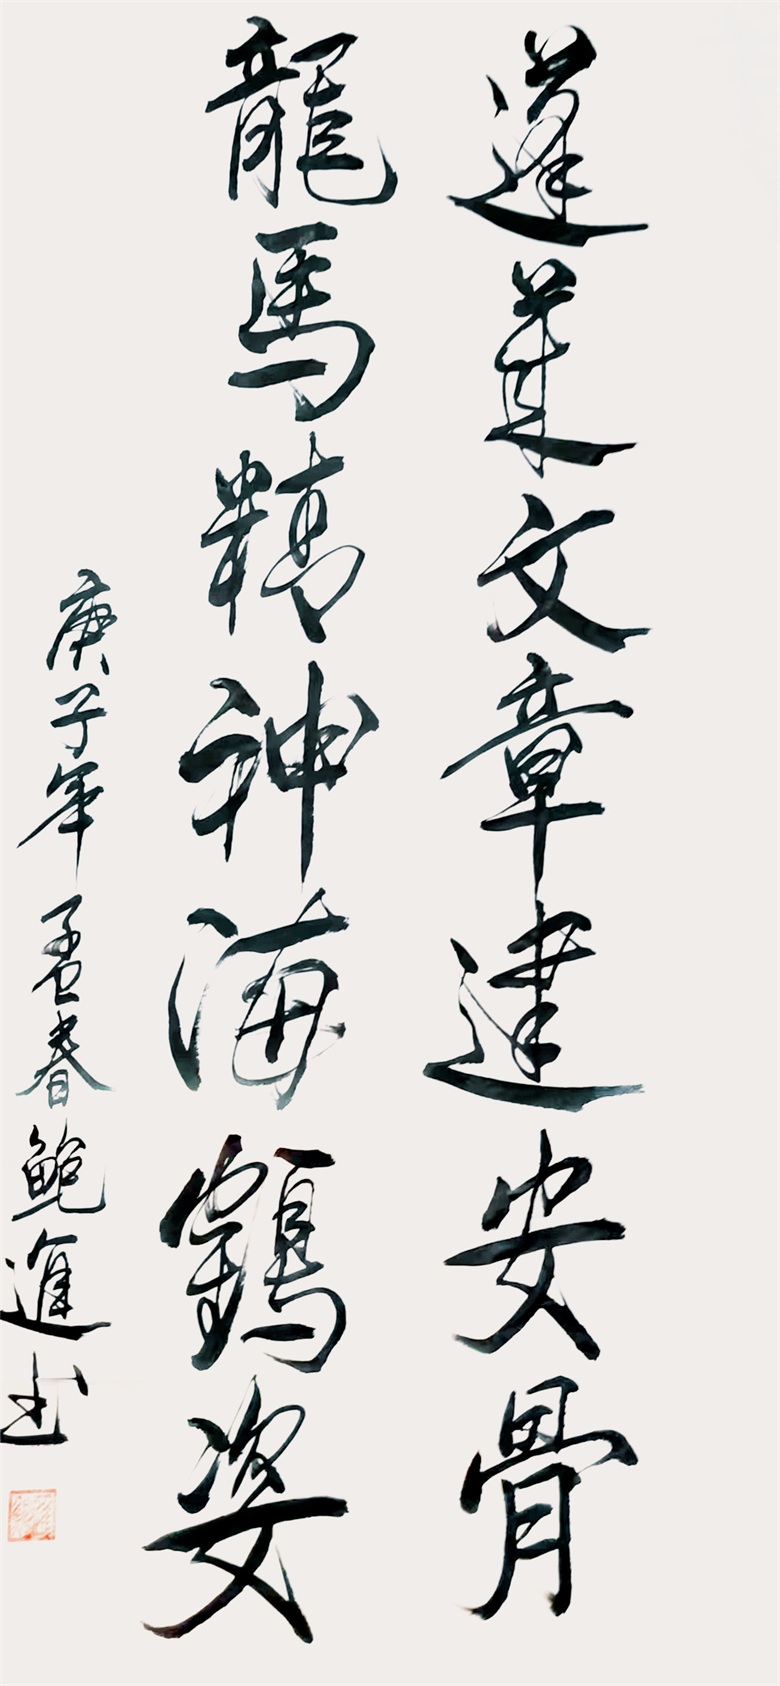 蓬莱文章建安骨
龍馬精神海鶴姿
庚子年孟春鲍進书